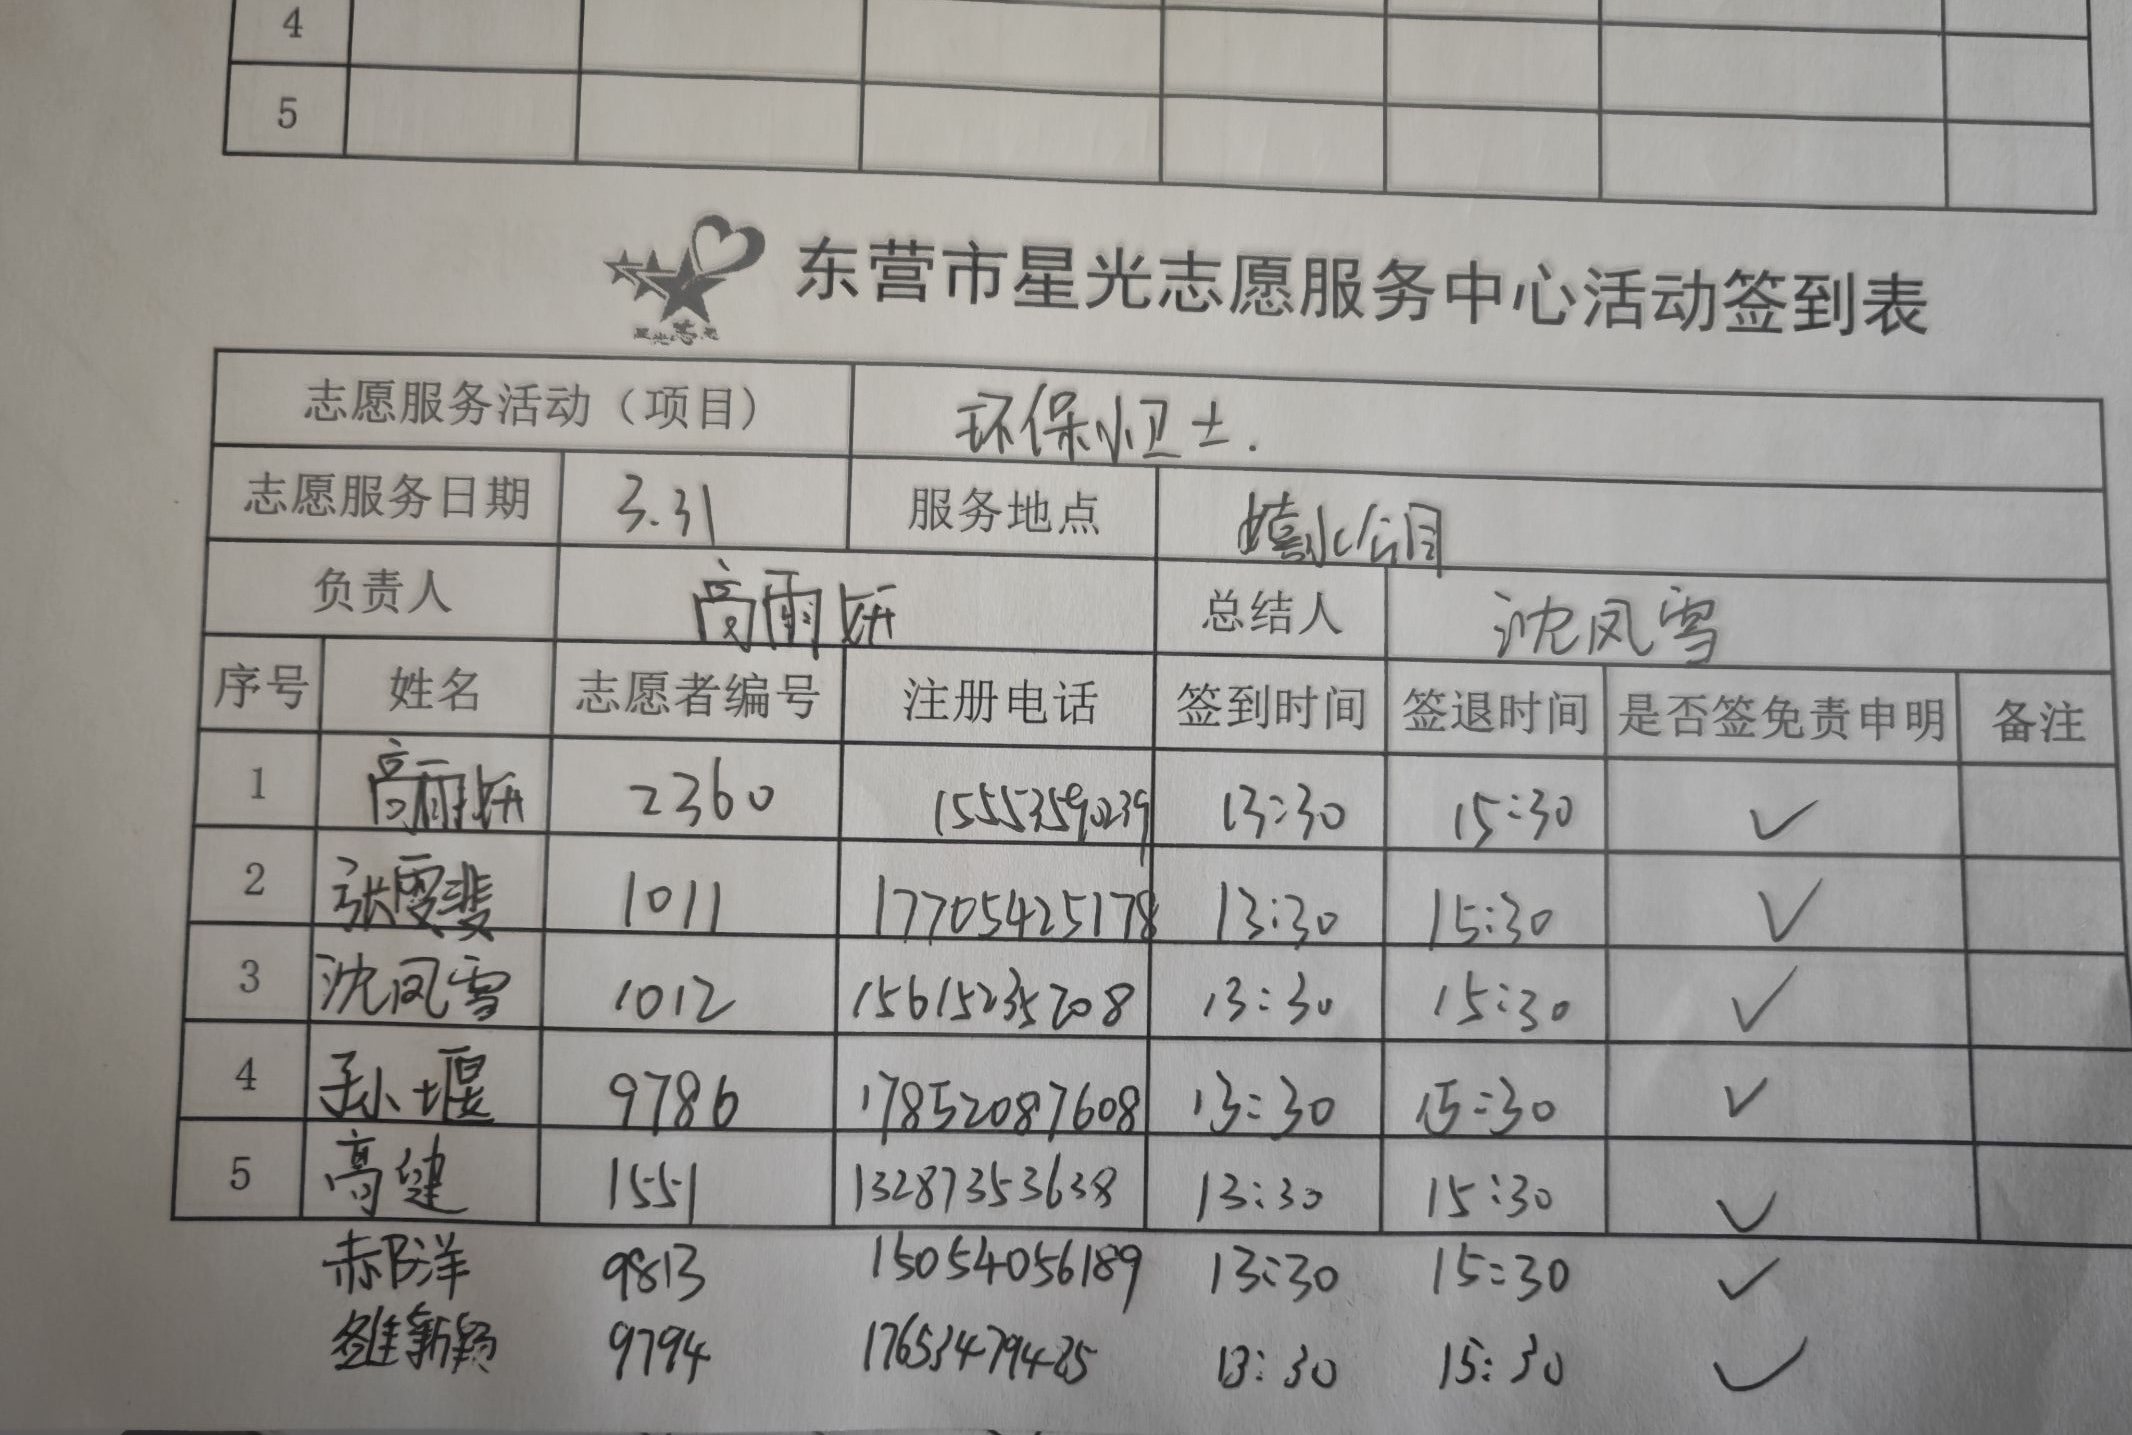 4
5
星光志愿
东营市星光志愿服务中心活动签到表
志愿服务活动（项目） 环保小卫士.
志愿服务日期 3.31 服务地点 嬉水公园
负责人 高雨妍 总结人 沈凤雪
序号 姓名 志愿者编号 注册电话 签到时间 签退时间 是否签免责申明 备注
1 高雨妍 2360 15553590239 13:30 15:30 ✓
2 张雯斐 1011 17705425178 13:30 15:30 ✓
3 沈凤雪 1012 15615235208 13:30 15:30 ✓
4 孙堰 9786 17852087608 13:30 15:30 ✓
5 高健 1551 13287353638 13:30 15:30 ✓
郝洋 9813 15054056189 13:30 15:30 ✓
新颖 9794 17653479485 13:30 15:30 ✓